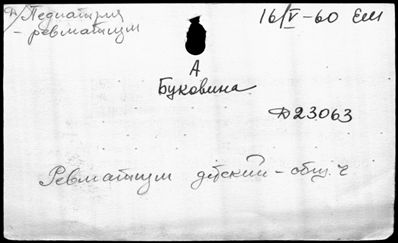 Педиатрия
- ревматизм
16/V-60 ЕМ
А
Буковина
D23063
Ревматизм детский - общ. ч